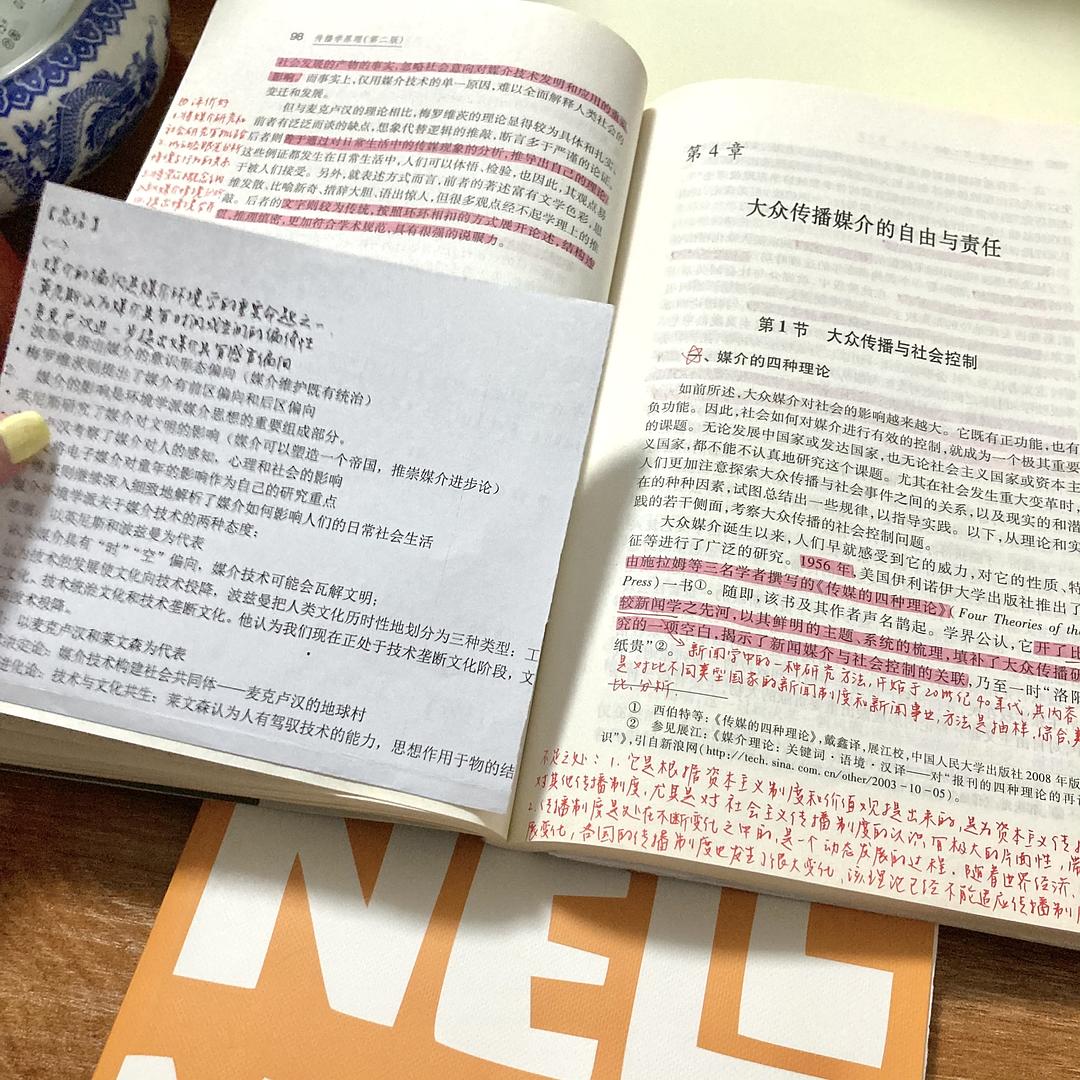 98 传播学原理(第二版)
社会发展的产物的事实,忽略社会意向对媒介技术发明和应用的重要
影响。而事实上,仅用媒介技术的单一原因,难以全面解释人类社会的
变迁和发展。
但与麦克卢汉的理论相比,梅罗维茨的理论显得较为具体和扎实,
前者有泛泛而谈的缺点,想象代替逻辑的推敲,断言多于严谨的论证,
后者则善于通过对日常生活中的传媒现象的分析,推导出自己的理论,
这些例证都发生在日常生活中,人们可以体悟、检验,也因此,其观点易
于被人们接受。另外,就表述方式而言,前者的著述富有文学色彩,思
维发散、比喻新奇、措辞大胆、语出惊人,但很多观点经不起学理上的推
敲。后者的文字则较为传统,按照环环相扣的方式展开论述,结构连
贯,推理缜密,更加符合学术规范,具有很强的说服力。
【总结】
(一)
媒介的偏向是媒介环境学的重要命题之一
英尼斯认为媒介具有时间或空间的偏倚性
麦克卢汉进一步提出媒介具有感官偏向
波斯曼提出媒介的意识形态偏向(媒介维护既有统治)
梅罗维茨则提出了媒介有前区偏向和后区偏向
媒介的影响是环境学派媒介思想的重要组成部分。
英尼斯研究了媒介对文明的影响(媒介可以塑造一个帝国,推崇媒介进步论)
汉考察了媒介对人的感知、心理和社会的影响
电子媒介对童年的影响作为自己的研究重点
则继续深入细致地解析了媒介如何影响人们的日常社会生活
介环境学派关于媒介技术的两种态度:
以英尼斯和波兹曼为代表
媒介具有“时”“空”偏向,媒介技术可能会瓦解文明;
技术的发展使文化向技术投降,波兹曼把人类文化历时性地划分为三种类型:工
文化、技术统治文化和技术垄断文化。他认为我们现在正处于技术垄断文化阶段,文
技术投降。
以麦克卢汉和莱文森为代表
决定论:媒介技术构建社会共同体——麦克卢汉的地球村
进化论:技术与文化共生:莱文森认为人有驾驭技术的能力,思想作用于物的结
第4章
大众传播媒介的自由与责任
第1节 大众传播与社会控制
一、媒介的四种理论
如前所述,大众媒介对社会的影响越来越大。它既有正功能,也有
负功能。因此,社会如何对媒介进行有效的控制,就成为一个极其重要
的课题。无论发展中国家或发达国家,也无论社会主义国家或资本主
义国家,都不能不认真地研究这个课题。尤其在社会发生重大变革时,
人们更加注意探索大众传播与社会事件之间的关系,以及现实的和潜
在的种种因素,试图总结出一些规律,以指导实践。以下,从理论和实
践的若干侧面,考察大众传播的社会控制问题。
大众媒介诞生以来,人们早就感受到它的威力,对它的性质、特
征等进行了广泛的研究。1956年,美国伊利诺伊大学出版社推出了
由施拉姆等三名学者撰写的《传媒的四种理论》(Four Theories of the
Press)一书①。随即,该书及其作者声名鹊起。学界公认,它开了比
较新闻学之先河,以其鲜明的主题、系统的梳理,填补了大众传播研
究的一项空白,揭示了新闻媒介与社会控制的关联,乃至一时“洛阳
纸贵”②。
新闻学中的一种研究方法,开始于20世纪40年代,其内容
是对比不同类型国家的新闻制度和新闻事业,方法是抽样、综合、
比、分析.
① 西伯特等:《传媒的四种理论》,戴鑫译,展江校,中国人民大学出版社2008年版
② 参见展江:《媒介理论:关键词·语境·汉译——对“报刊的四种理论的再
识”》,引自新浪网(http://tech.sina.com.cn/other/2003-10-05)。
不足之处:1.它是根据资本主义制度和价值观提出来的,是为资本主义传
对其他传播制度,尤其是对社会主义传播制度的认识,有极大的片面性,
2.传播制度是处在不断变化之中的,是一个动态发展的过程。随着世界经济、
展变化,各国的传播制度也发生了很大变化,该理论已经不能适应传播制
NEL